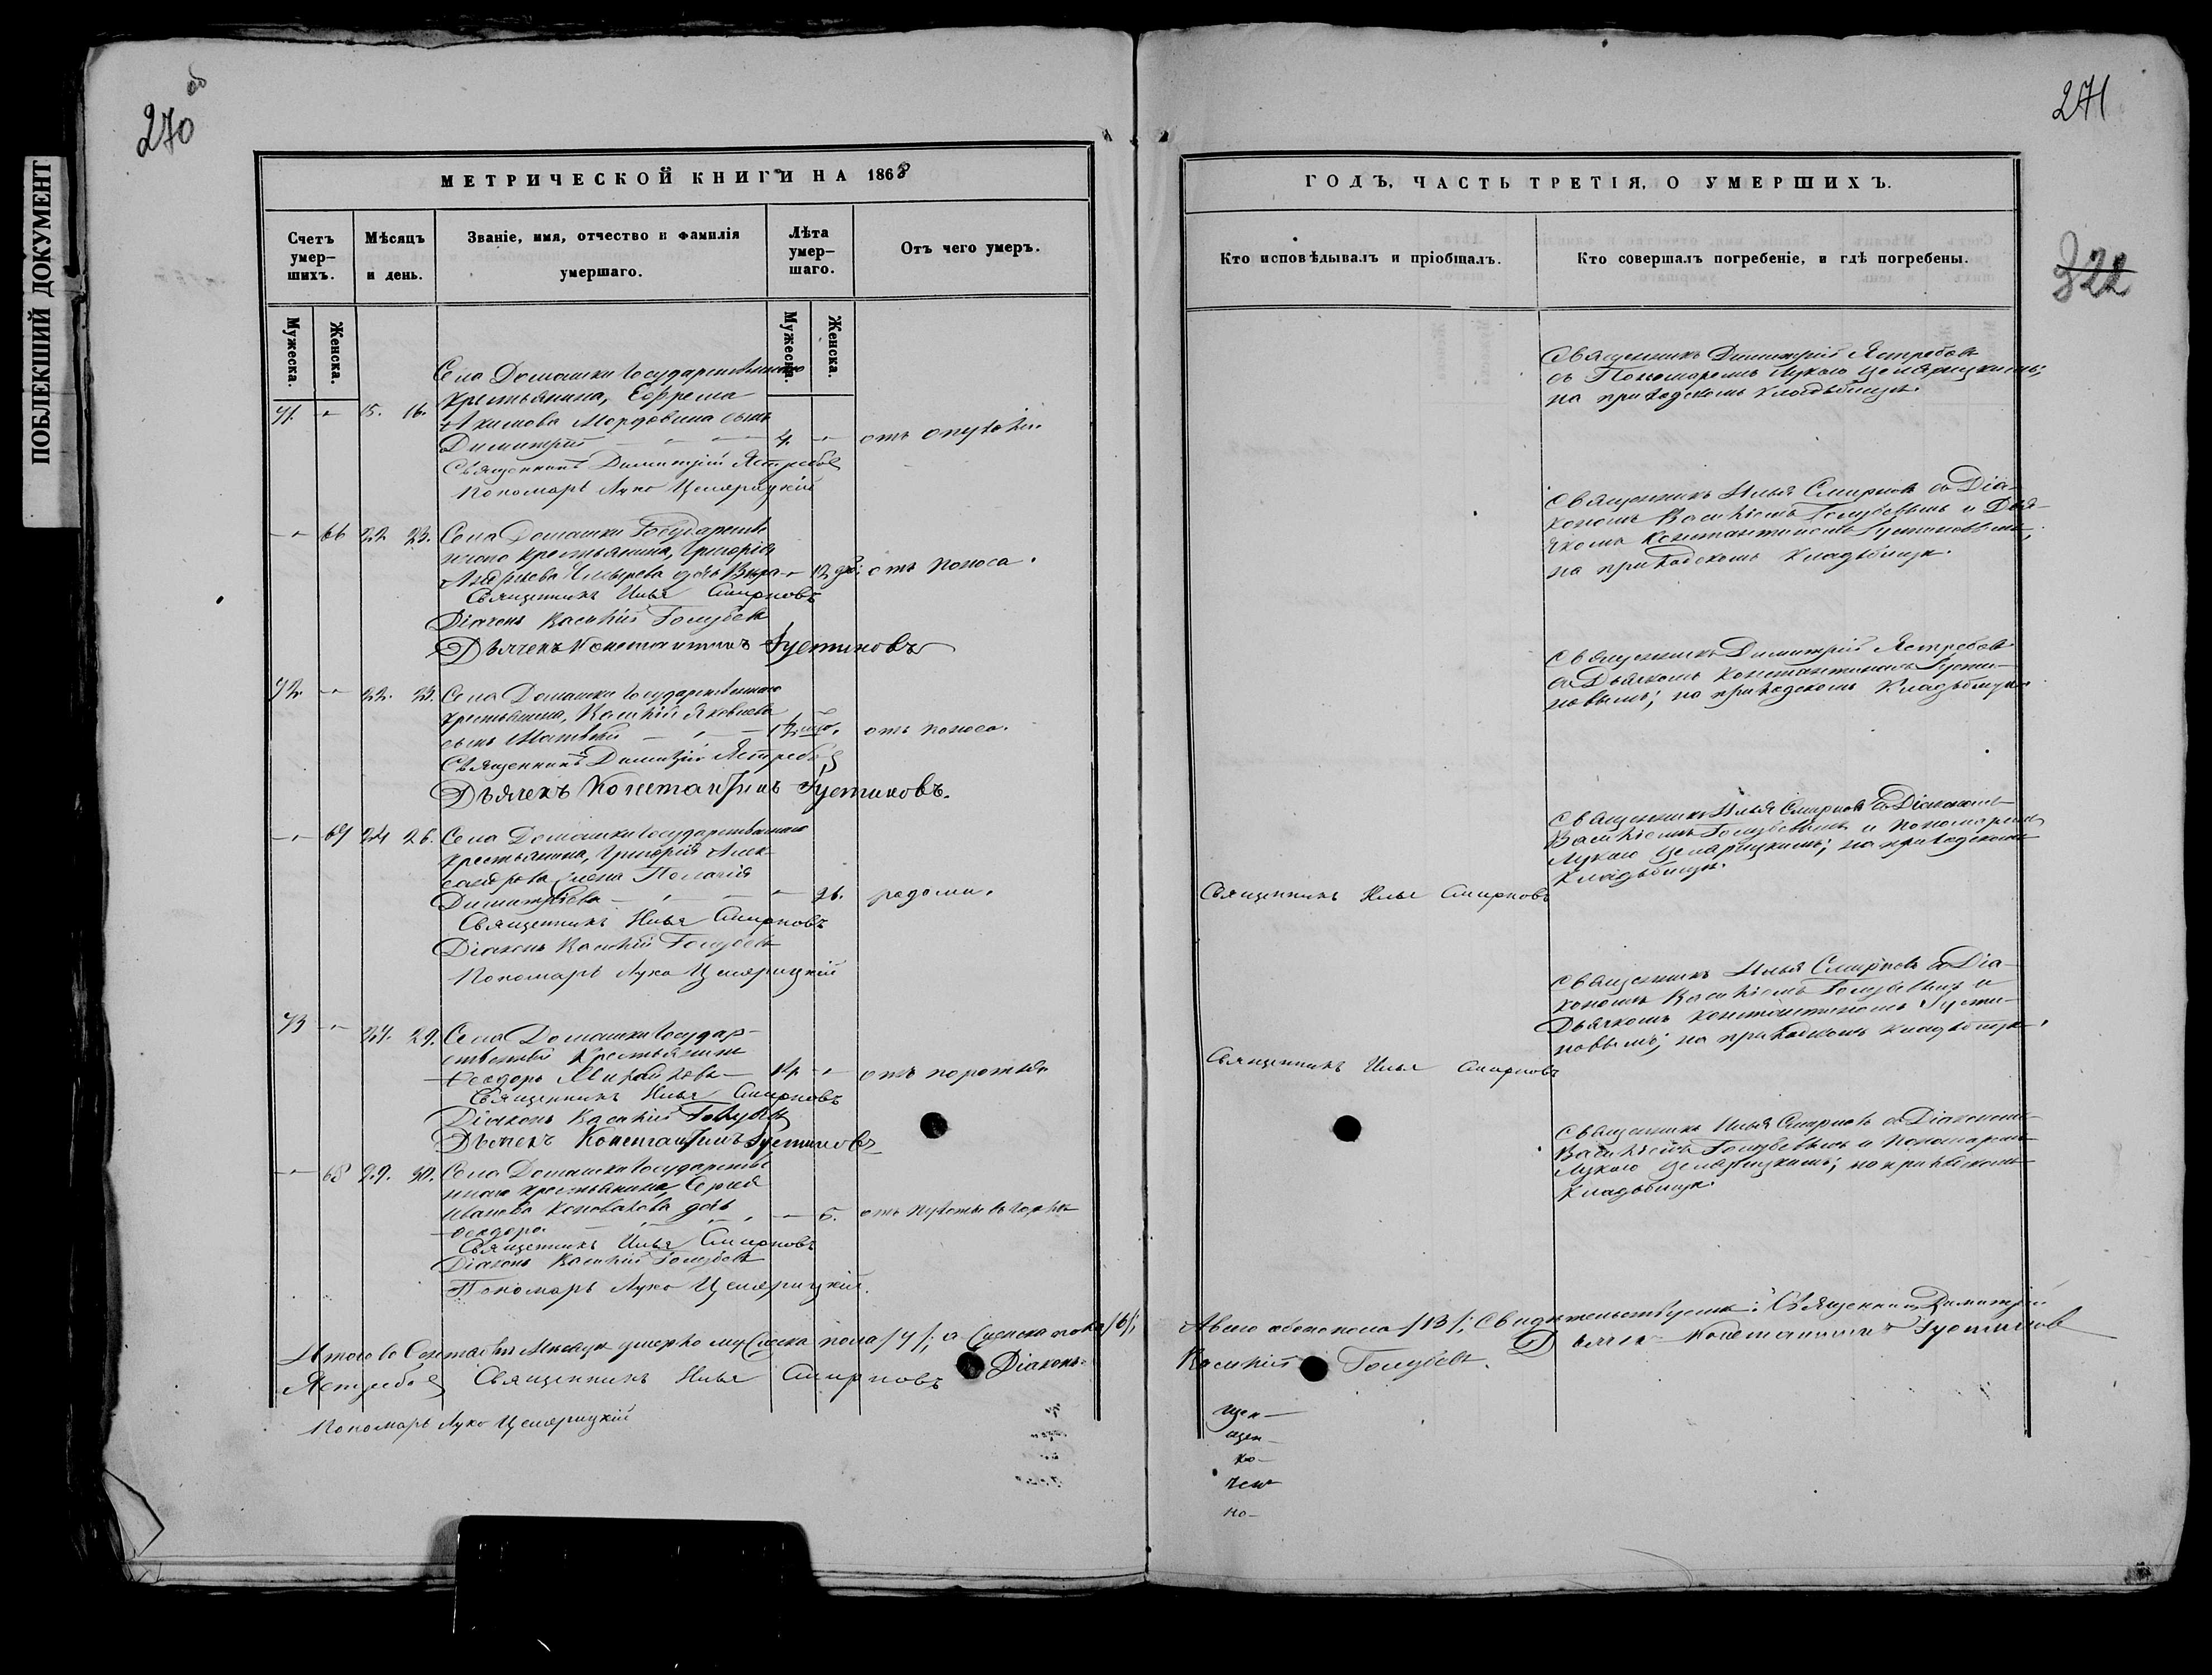 270 об
271
322
ПОБЛЕКШИЙ ДОКУМЕНТ
МЕТРИЧЕСКОЙ КНИГИ НА 1868
Счетъ умер-шихъ.
Мѣсяцъ и день.
Званіе, имя, отчество и фамилія умершаго.
Лѣта умер-шаго.
Отъ чего умеръ.
Мужеска.
Женска.
Мужеска.
Женска.
Села Домашки Государственнаго
крестьянина, Ефрема
71. - 15. 16. Акимова Мордовина сынъ
Димитрій 4. - отъ опухоли
Священникъ Димитрій Ястребовъ
Пономарь Лука Цемярицкій
- 66 22 23. Села Домашки Государствен
наго крестьянина, Григорія
дочь Вѣра - 12 отъ поноса.
Священникъ Илья Смирновъ
Діаконъ Василій Голубевъ
Дьячекъ Константинъ Густиновъ
72. - 22. 23. Села Домашки Государственнаго
крестьянина, Василія Яковлева
сынъ Матвей отъ поноса.
Священникъ Димитрій Ястребовъ
Дьячекъ Константинъ Густиновъ.
- 67 24 26. Села Домашки Государственнаго
крестьянина, Григорія Алек-
сандрова жена Пелагія
Димитріева - 26. родами.
Священникъ Илья Смирновъ
Діаконъ Василій Голубевъ
Пономарь Лука Цемярицкій
73 - 27. 29. Села Домашки Государ-
ственный крестьянинъ
Ѳеодоръ Михайловъ -
Священникъ Илья Смирновъ
Діаконъ Василій Голубевъ
Дьячекъ Константинъ Густиновъ
- 68 29. 30. Села Домашки Государствен
наго крестьянина, Сергея
Иванова Коновалова дочь
Ѳеодора - 5.
Священникъ Илья Смирновъ
Діаконъ Василій Голубевъ
Пономарь Лука Цемярицкій.
Итого въ Сентябрѣ Мѣсяцѣ умерло мужеска пола /7/, а женска пола /6/,
Ястребовъ Священникъ Илья Смирновъ Діаконъ
Пономарь Лука Цемярицкій
ГОДЪ, ЧАСТЬ ТРЕТІЯ, О УМЕРШИХЪ.
Кто исповѣдывалъ и пріобщалъ.
Кто совершалъ погребеніе, и гдѣ погребены.
Священникъ Димитрій Ястребовъ
съ Пономаремъ Лукою Цемярицкимъ;
на приходскомъ кладбищѣ.
Священникъ Илья Смирновъ съ Діа-
кономъ Василіемъ Голубевымъ и Дья-
чкомъ Константиномъ Густиновымъ;
на приходскомъ кладбищѣ.
Священникъ Димитрій Ястребовъ
съ Дьячкомъ Константиномъ Густи-
новымъ; на приходскомъ кладбищѣ.
Священникъ Илья Смирновъ съ Діакономъ
Василіемъ Голубевымъ и Пономаремъ
Лукою Цемярицкимъ; на приходскомъ
кладбищѣ.
Священникъ Илья Смирновъ
Священникъ Илья Смирновъ съ Діа-
кономъ Василіемъ Голубевымъ и
Дьячкомъ Константиномъ Густи-
новымъ; на приходскомъ кладбищѣ.
Священникъ Илья Смирновъ
Священникъ Илья Смирновъ съ Діакономъ
Василіемъ Голубевымъ и Пономаремъ
Лукою Цемярицкимъ; на приходскомъ
кладбищѣ.
А всего обоего пола /13/; Свидѣтельствуемъ: Священникъ Димитрій
Василій Голубевъ. Дьячекъ Константинъ Густиновъ
щен-
ко-
но-